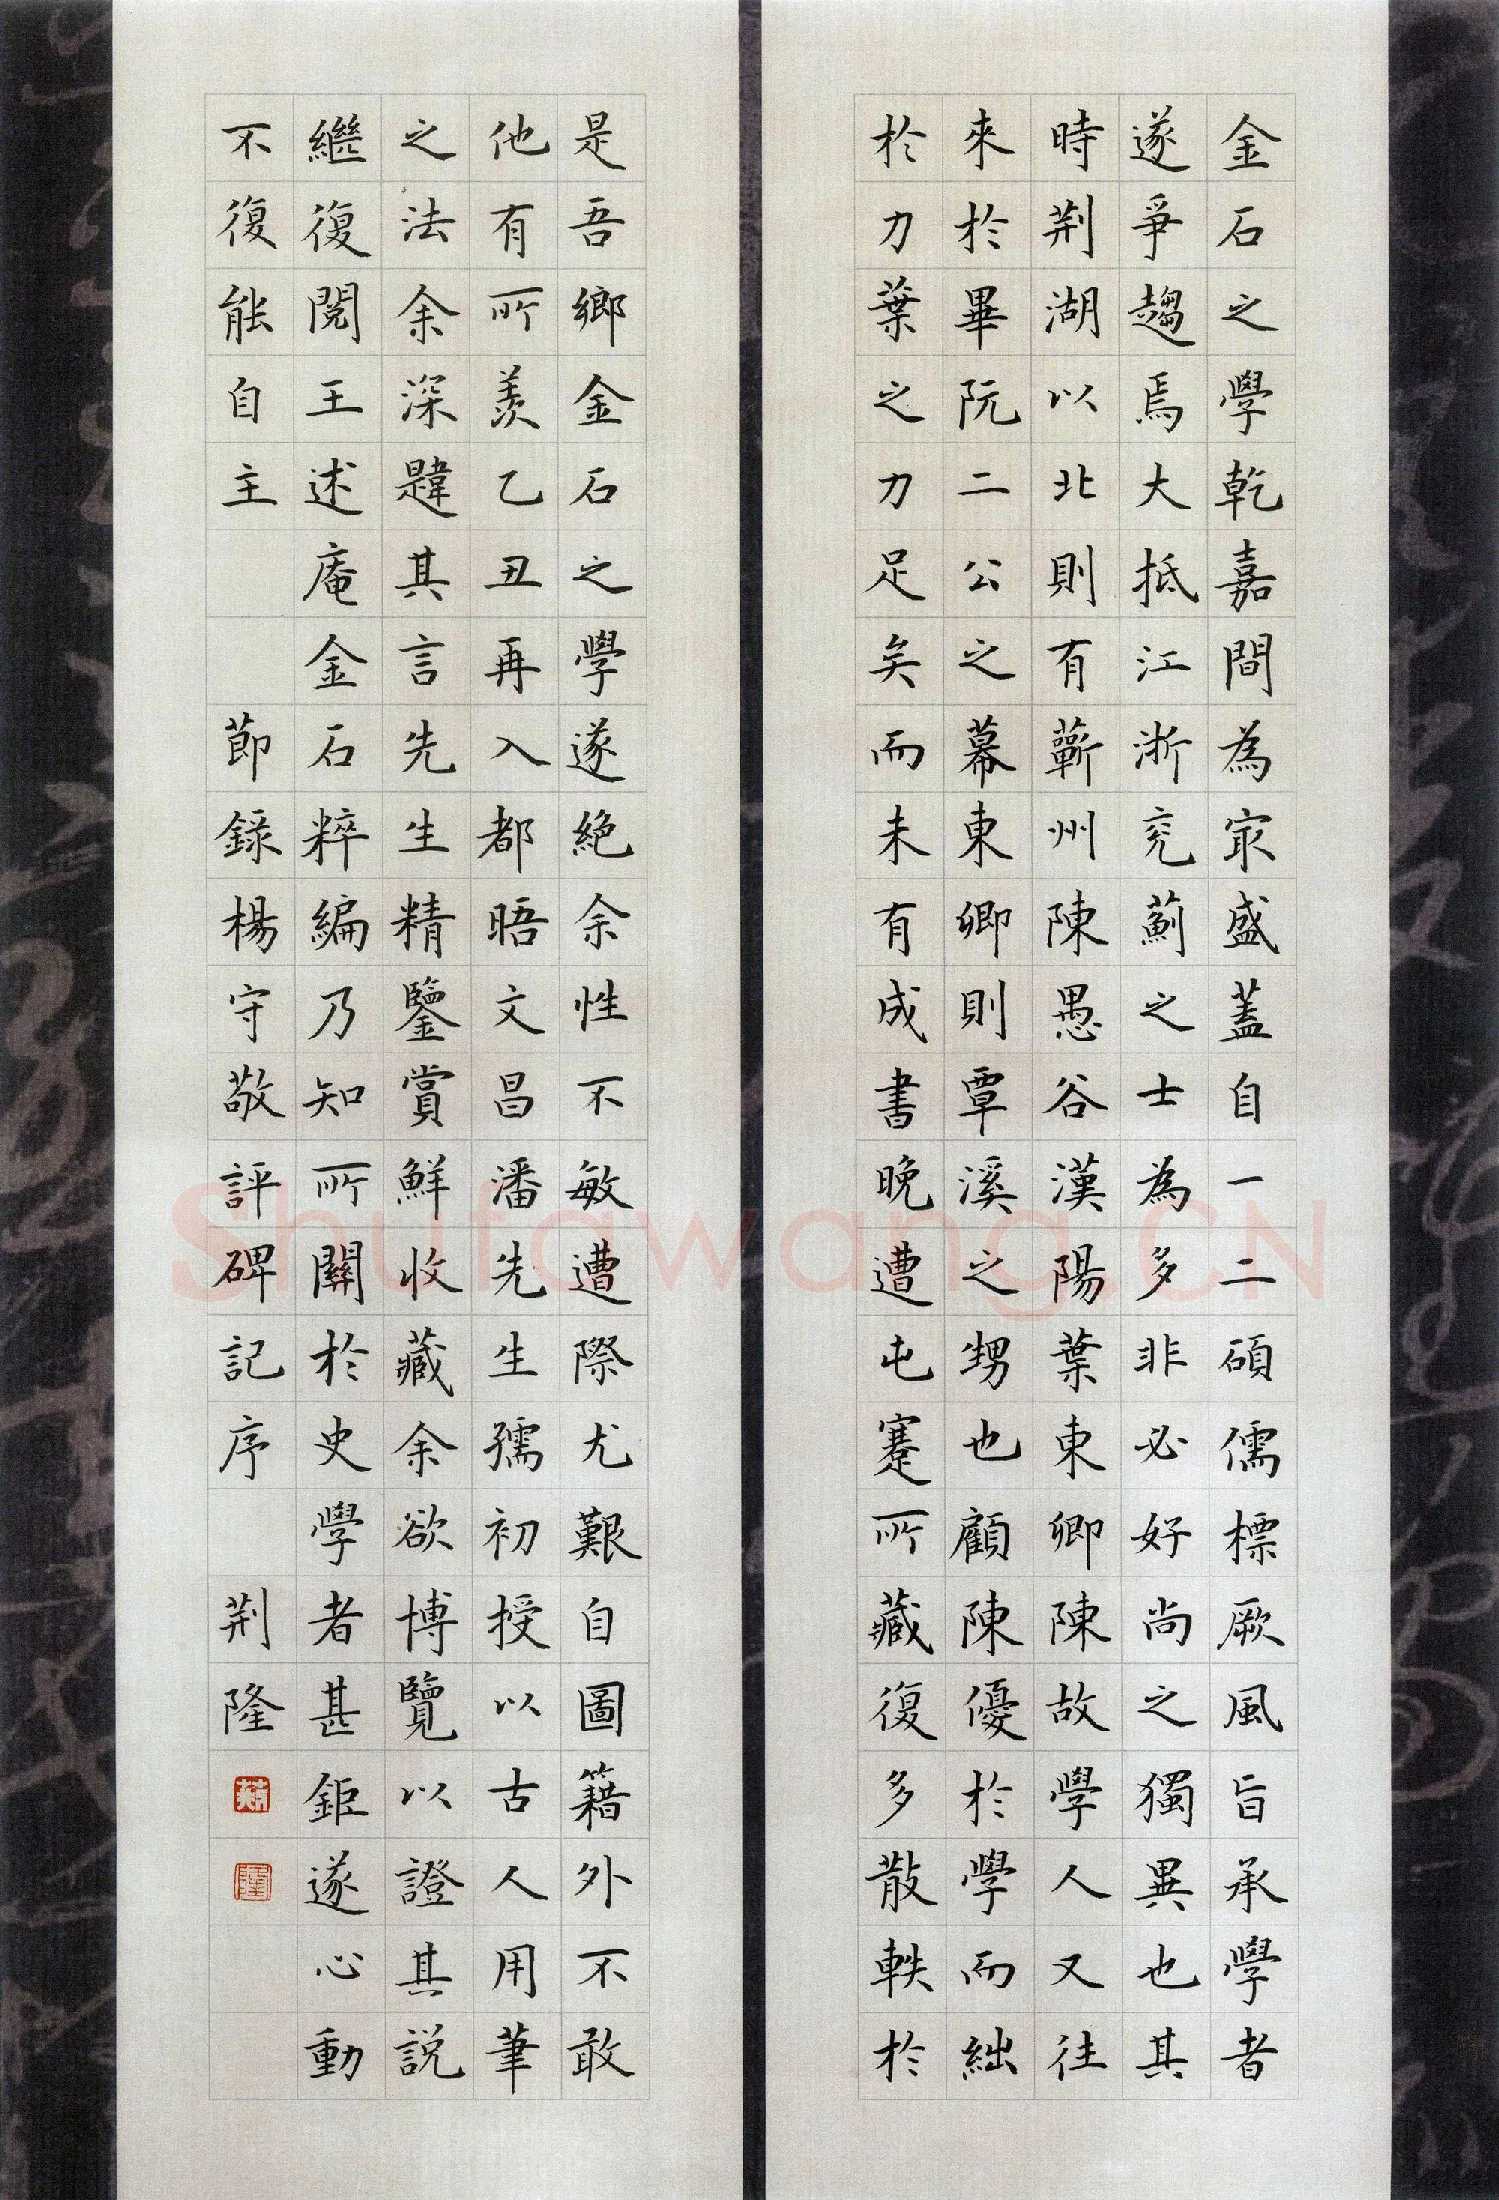 金石之學乾嘉間為冣盛蓋自一二碩儒標厥風旨承學者
遂爭趨焉大抵江浙兖薊之士為多非必好尚之獨異也其
時荆湖以北則有蘄州陳愚谷漢陽葉東卿陳故學人又往
來於畢阮二公之幕東卿則覃溪之甥也顧陳優於學而絀
於力葉之力足矣而未有成書晚遭屯蹇所藏復多散軼於
是吾鄉金石之學遂絕余性不敏遭際尤艱自圖籍外不敢
他有所羨乙丑再入都晤文昌潘先生孺初授以古人用筆
之法余深韙其言先生精鑒賞鮮收藏余欲博覽以證其説
繼復閱王述庵金石粹編乃知所關於史學者甚鉅遂心動
不復能自主 節錄楊守敬評碑記序 荆隆
Shufawang.CN